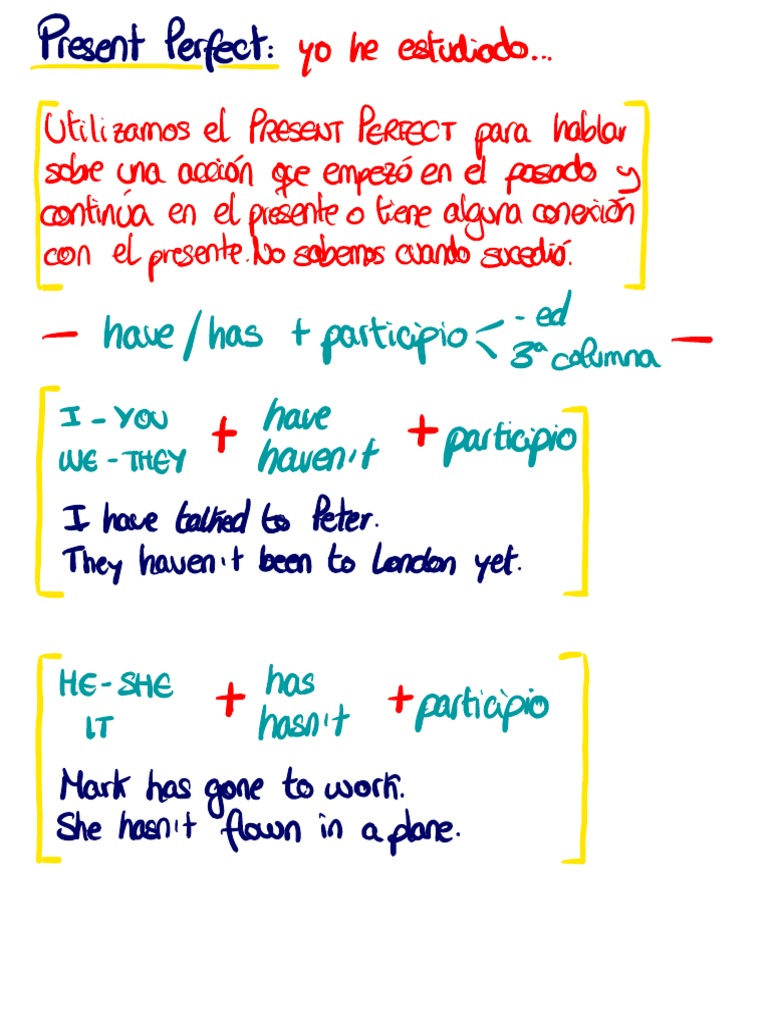 Present Perfect: yo he estudiado...
Utilizamos el PRESENT PERFECT para hablar
sobre una acción que empezó en el pasado y
continúa en el presente o tiene alguna conexión
con el presente. No sabemos cuando sucedió.
- have/has + participio < -ed
3ª columna -
I - YOU + have + participio
WE - THEY haven't
I have talked to Peter.
They haven't been to London yet.
HE - SHE + has + participio
IT hasn't
Mark has gone to work.
She hasn't flown in a plane.